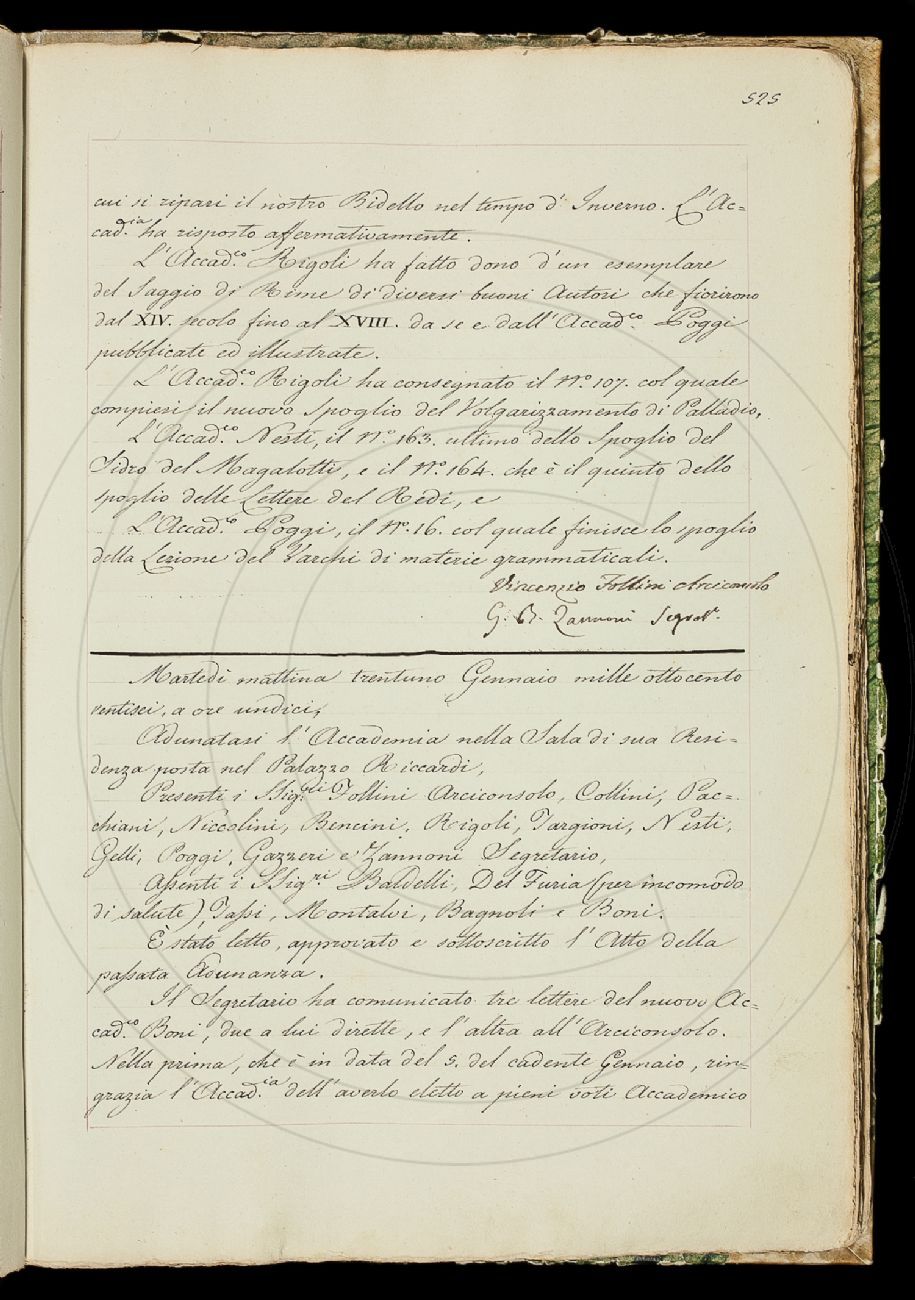 525
cui si ripari il nostro Bidello nel tempo d'Inverno. L'Ac=
cad.ia ha risposto affermativamente.
L'Accad.co Rigoli ha fatto dono d'un esemplare
del Saggio di Rime di diversi buoni Autori che fiorirono
dal XIV. secolo fino al XVIII. da se e dall'Accad.co Poggi
pubblicate ed illustrate.
L'Accad.co Rigoli ha consegnato il N.º 107. col quale
compiesi il nuovo Spoglio del Volgarizzamento di Palladio,
L'Accad.co Nesti, il N.º 163. ultimo dello Spoglio del
Sidro del Magalotti, e il N.º 164. che è il quinto dello
spoglio delle Lettere del Redi, e
L'Accad.co Poggi, il N.º 16. col quale finisce lo spoglio
della Lezione del Varchi di materie grammaticali.
Vincenzio Follini Arciconsolo
G. B. Zannoni Segret.º
Martedì mattina trentuno Gennaio mille ottocento
ventisei, a ore undici,
Adunatasi l'Accademia nella Sala di sua Resi=
denza posta nel Palazzo Riccardi,
Presenti i SSig.ri Follini Arciconsolo, Collini, Pac=
chiani, Niccolini, Bencini, Rigoli, Targioni, Nesti,
Gelli, Poggi, Gazzeri e Zannoni Segretario,
Assenti i SSig.ri Baldelli, Del Furia (per incomodo
di salute), Tassi, Montalvi, Bagnoli e Boni.
È stato letto, approvato e sottoscritto l'Atto della
passata Adunanza.
Il Segretario ha comunicato tre lettere del nuovo Ac=
cad.co Boni, due a lui dirette, e l'altra all'Arciconsolo.
Nella prima, che è in data del 5. del cadente Gennaio, rin=
grazia l'Accad.ia dell'averlo eletto a pieni voti Accademico